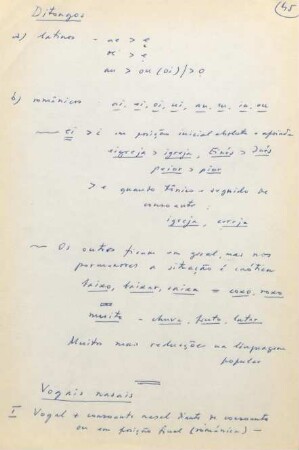 45
Ditongos
a) latinos - ae > ę
oe > ẹ
au > ou (oi) / > o
b) românicos ai, ei, oi, ui, au, eu, iu, ou
— ei > i em posição inicial absoluta e apoiada
eigreja > igreja,
peior > pior
> e quando tónico e seguido de
consoante:
igreja, cereja
— Os outros ficam em geral, mas nos
pormenores a situação é caótica
baixo, baixar, caixa = coxo, roxo
muito - chuva, fruto, lutar
Muitas mais reduções na linguagem
popular
Vogais nasais
I Vogal + consoante nasal diante de consoante
ou em posição final (românica) —